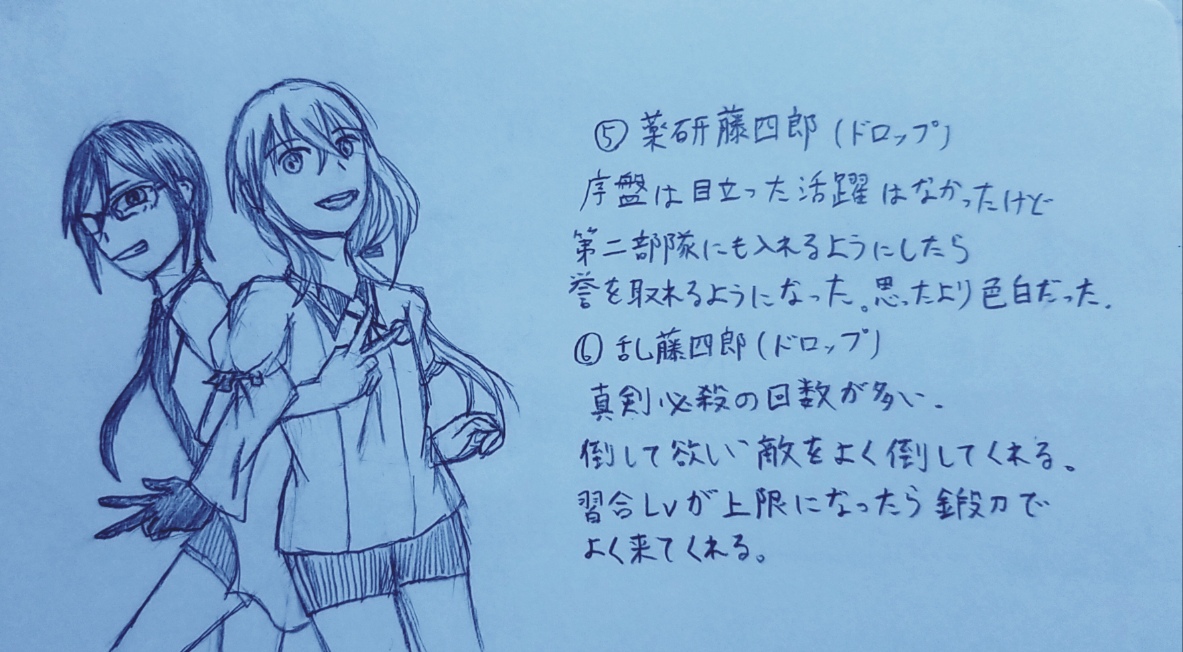 ⑤ 薬研藤四郎(ドロップ)
序盤は目立った活躍はなかったけど
第二部隊にも入れるようにしたら
誉を取れるようになった。思ったより色白だった.
⑥ 乱藤四郎(ドロップ)
真剣必殺の回数が多い.
倒して欲い敵をよく倒してくれる。
習合Lvが上限になったら鍛刀で
よく来てくれる。